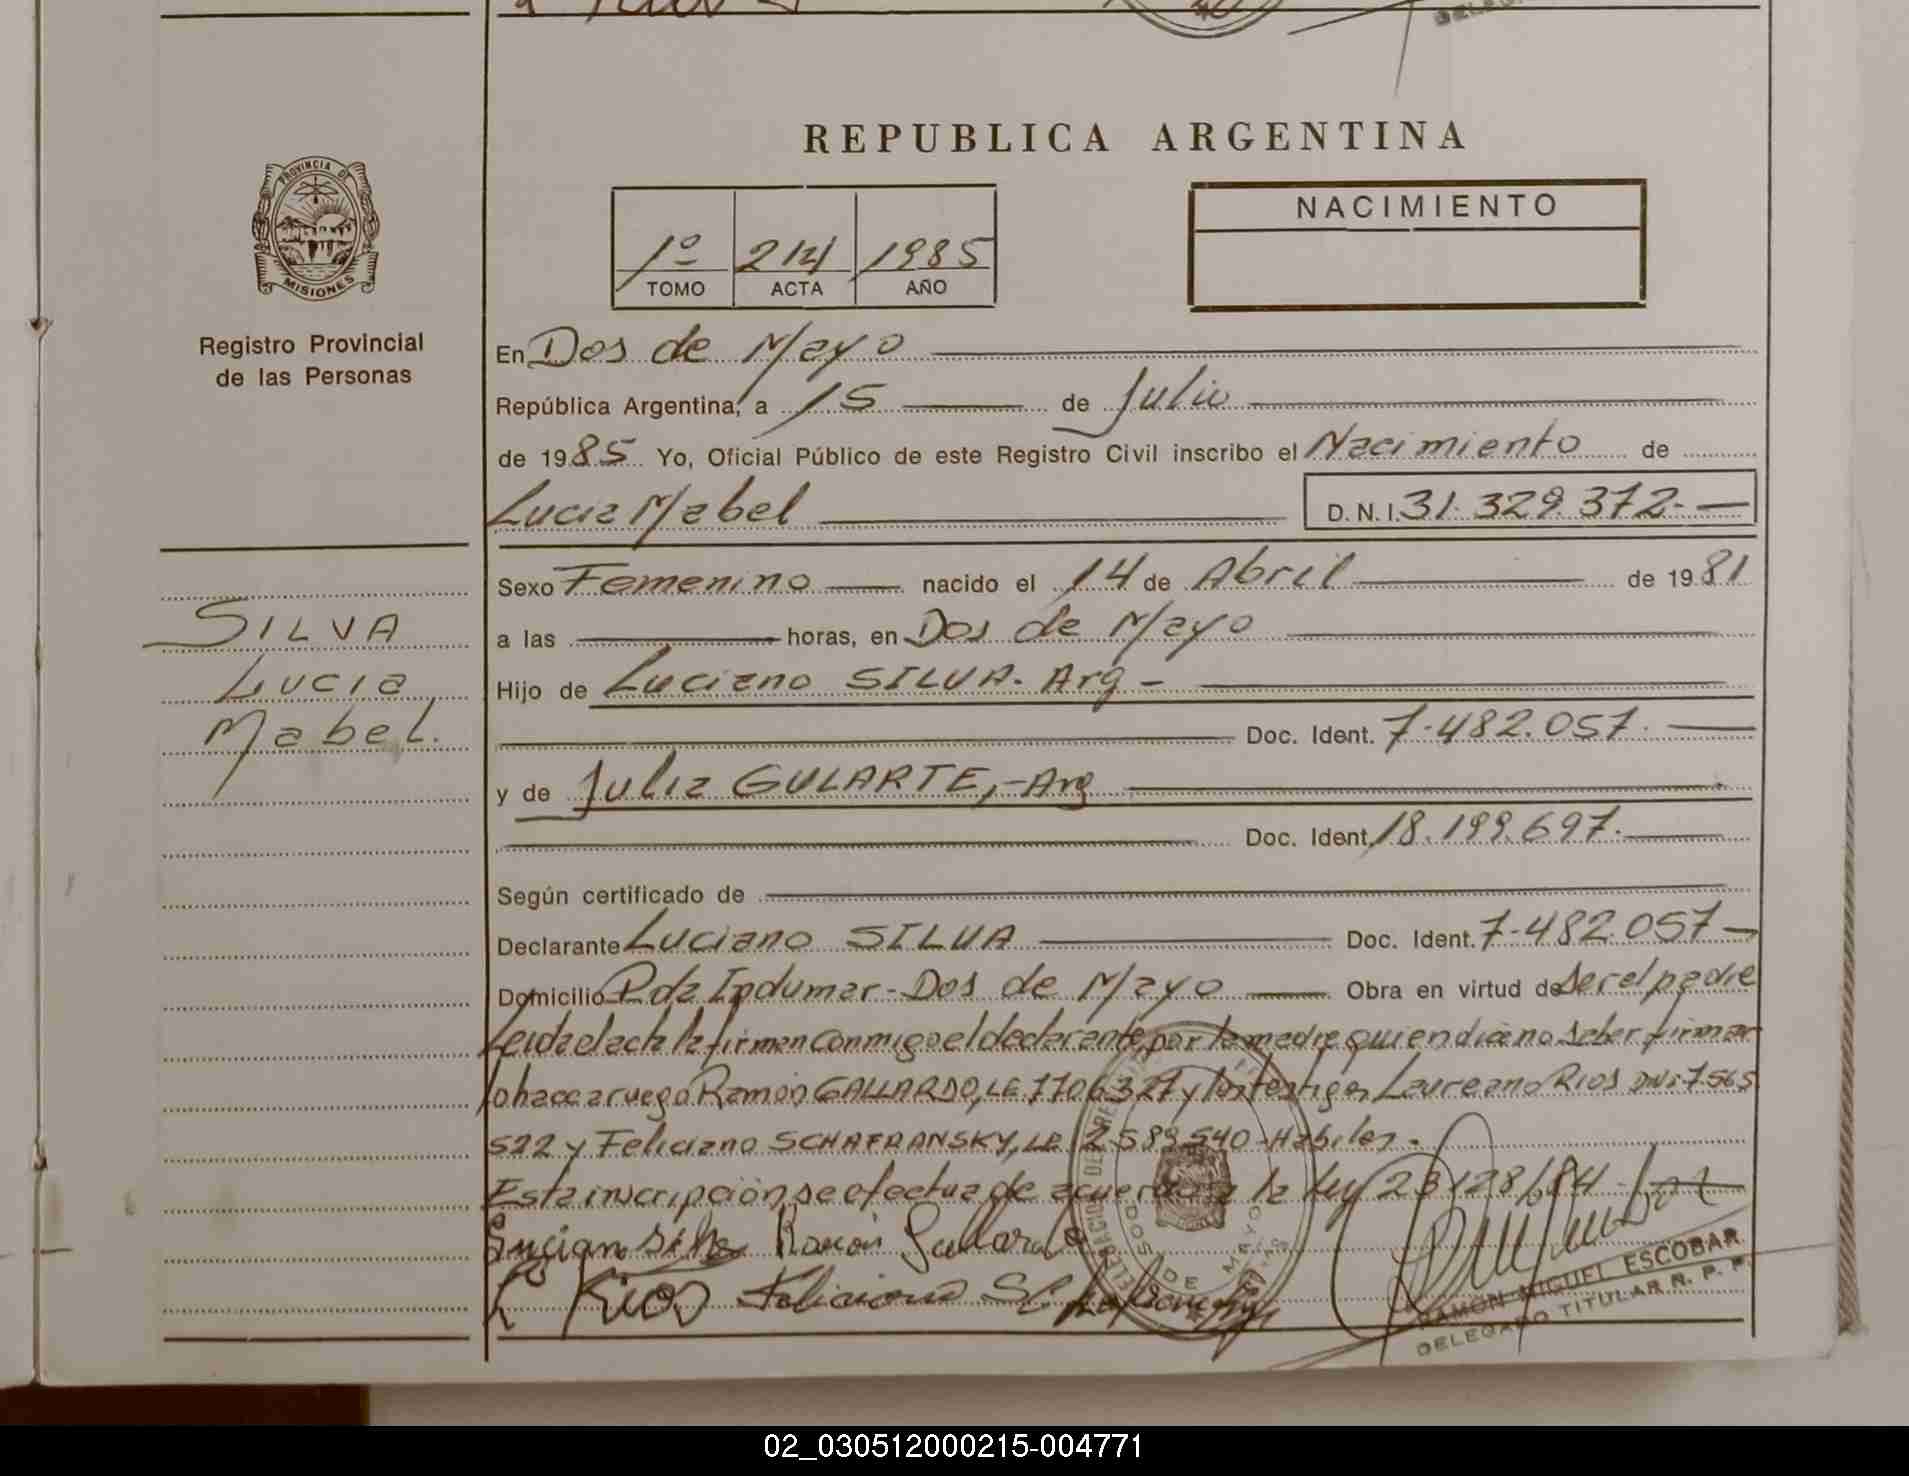 REPUBLICA ARGENTINA
PROVINCIA DE
MISIONES
Registro Provincial
de las Personas
1º 214 1985
TOMO ACTA AÑO
NACIMIENTO
En Dos de Mayo
República Argentina, a 15 de Julio
de 1985 Yo, Oficial Público de este Registro Civil inscribo el Nacimiento de
Lucia Mabel D.N.I. 31.329.372.-
Sexo Femenino nacido el 14 de Abril de 1981
a las horas, en Dos de Mayo
Hijo de Luciano SILVA. Arg -
Doc. Ident. 7.482.057.
y de Julia GULARTE,-Arg
Doc. Ident. 18.199.697.
Según certificado de
Declarante Luciano SILVA Doc. Ident. 7.482.057-
Domicilio Pda Indumar - Dos de Mayo Obra en virtud de ser el padre
Leida el acta la firman conmigo el declarante, por la madre quien dice no saber firmar
lo hace a ruego Ramón GALLARDO, LE 7706327 y los testigos Laureano RIOS DNI 7.565
522 y Feliciano SCHAFRANSKY, LE 2589540 - Habiles.
Esta inscripción se efectua de acuerdo a la Ley 23128/84.-
SILVA
Lucia
Mabel.
Luciano Silva Ramón Gallardo
L Rios Feliciano
DOS DE MAYO
RAMON MIGUEL ESCOBAR
DELEGADO TITULAR R. P. P.
02_030512000215-004771